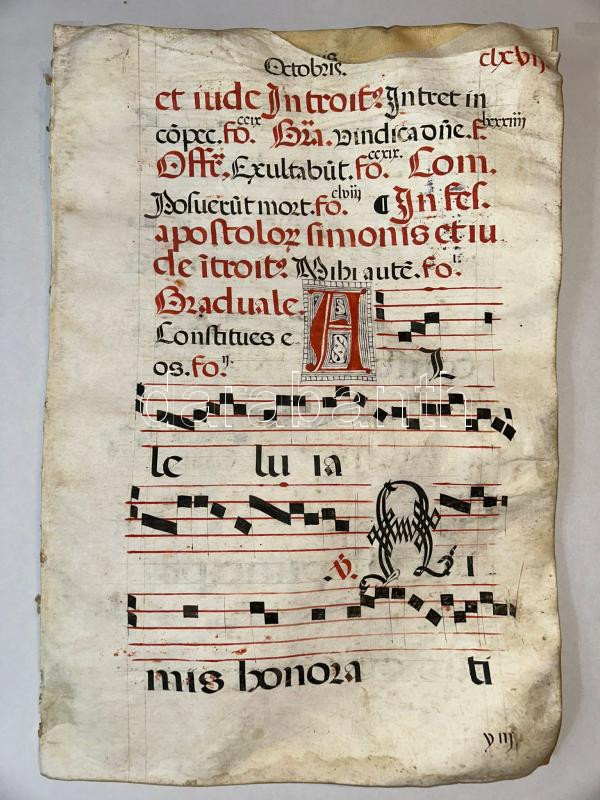 Octobris.
clxvij
et iude Introit⁹ Intret in
cōpec. fo. ccix Gra. vindica dn̄e. f. lxxxiiij
Offr̄. Exultabūt. fo. ccxix. Com.
Posuerūt mort. fo. clviij ¶ In fes.
apostoloꝝ simonis et iu
de ītroit⁹ Mihi autē. fo. l.
Graduale.
Constitues e
os. fo. ij.
A L
le lu ia
darabanth
℣. Ni
mis honora ti
viij